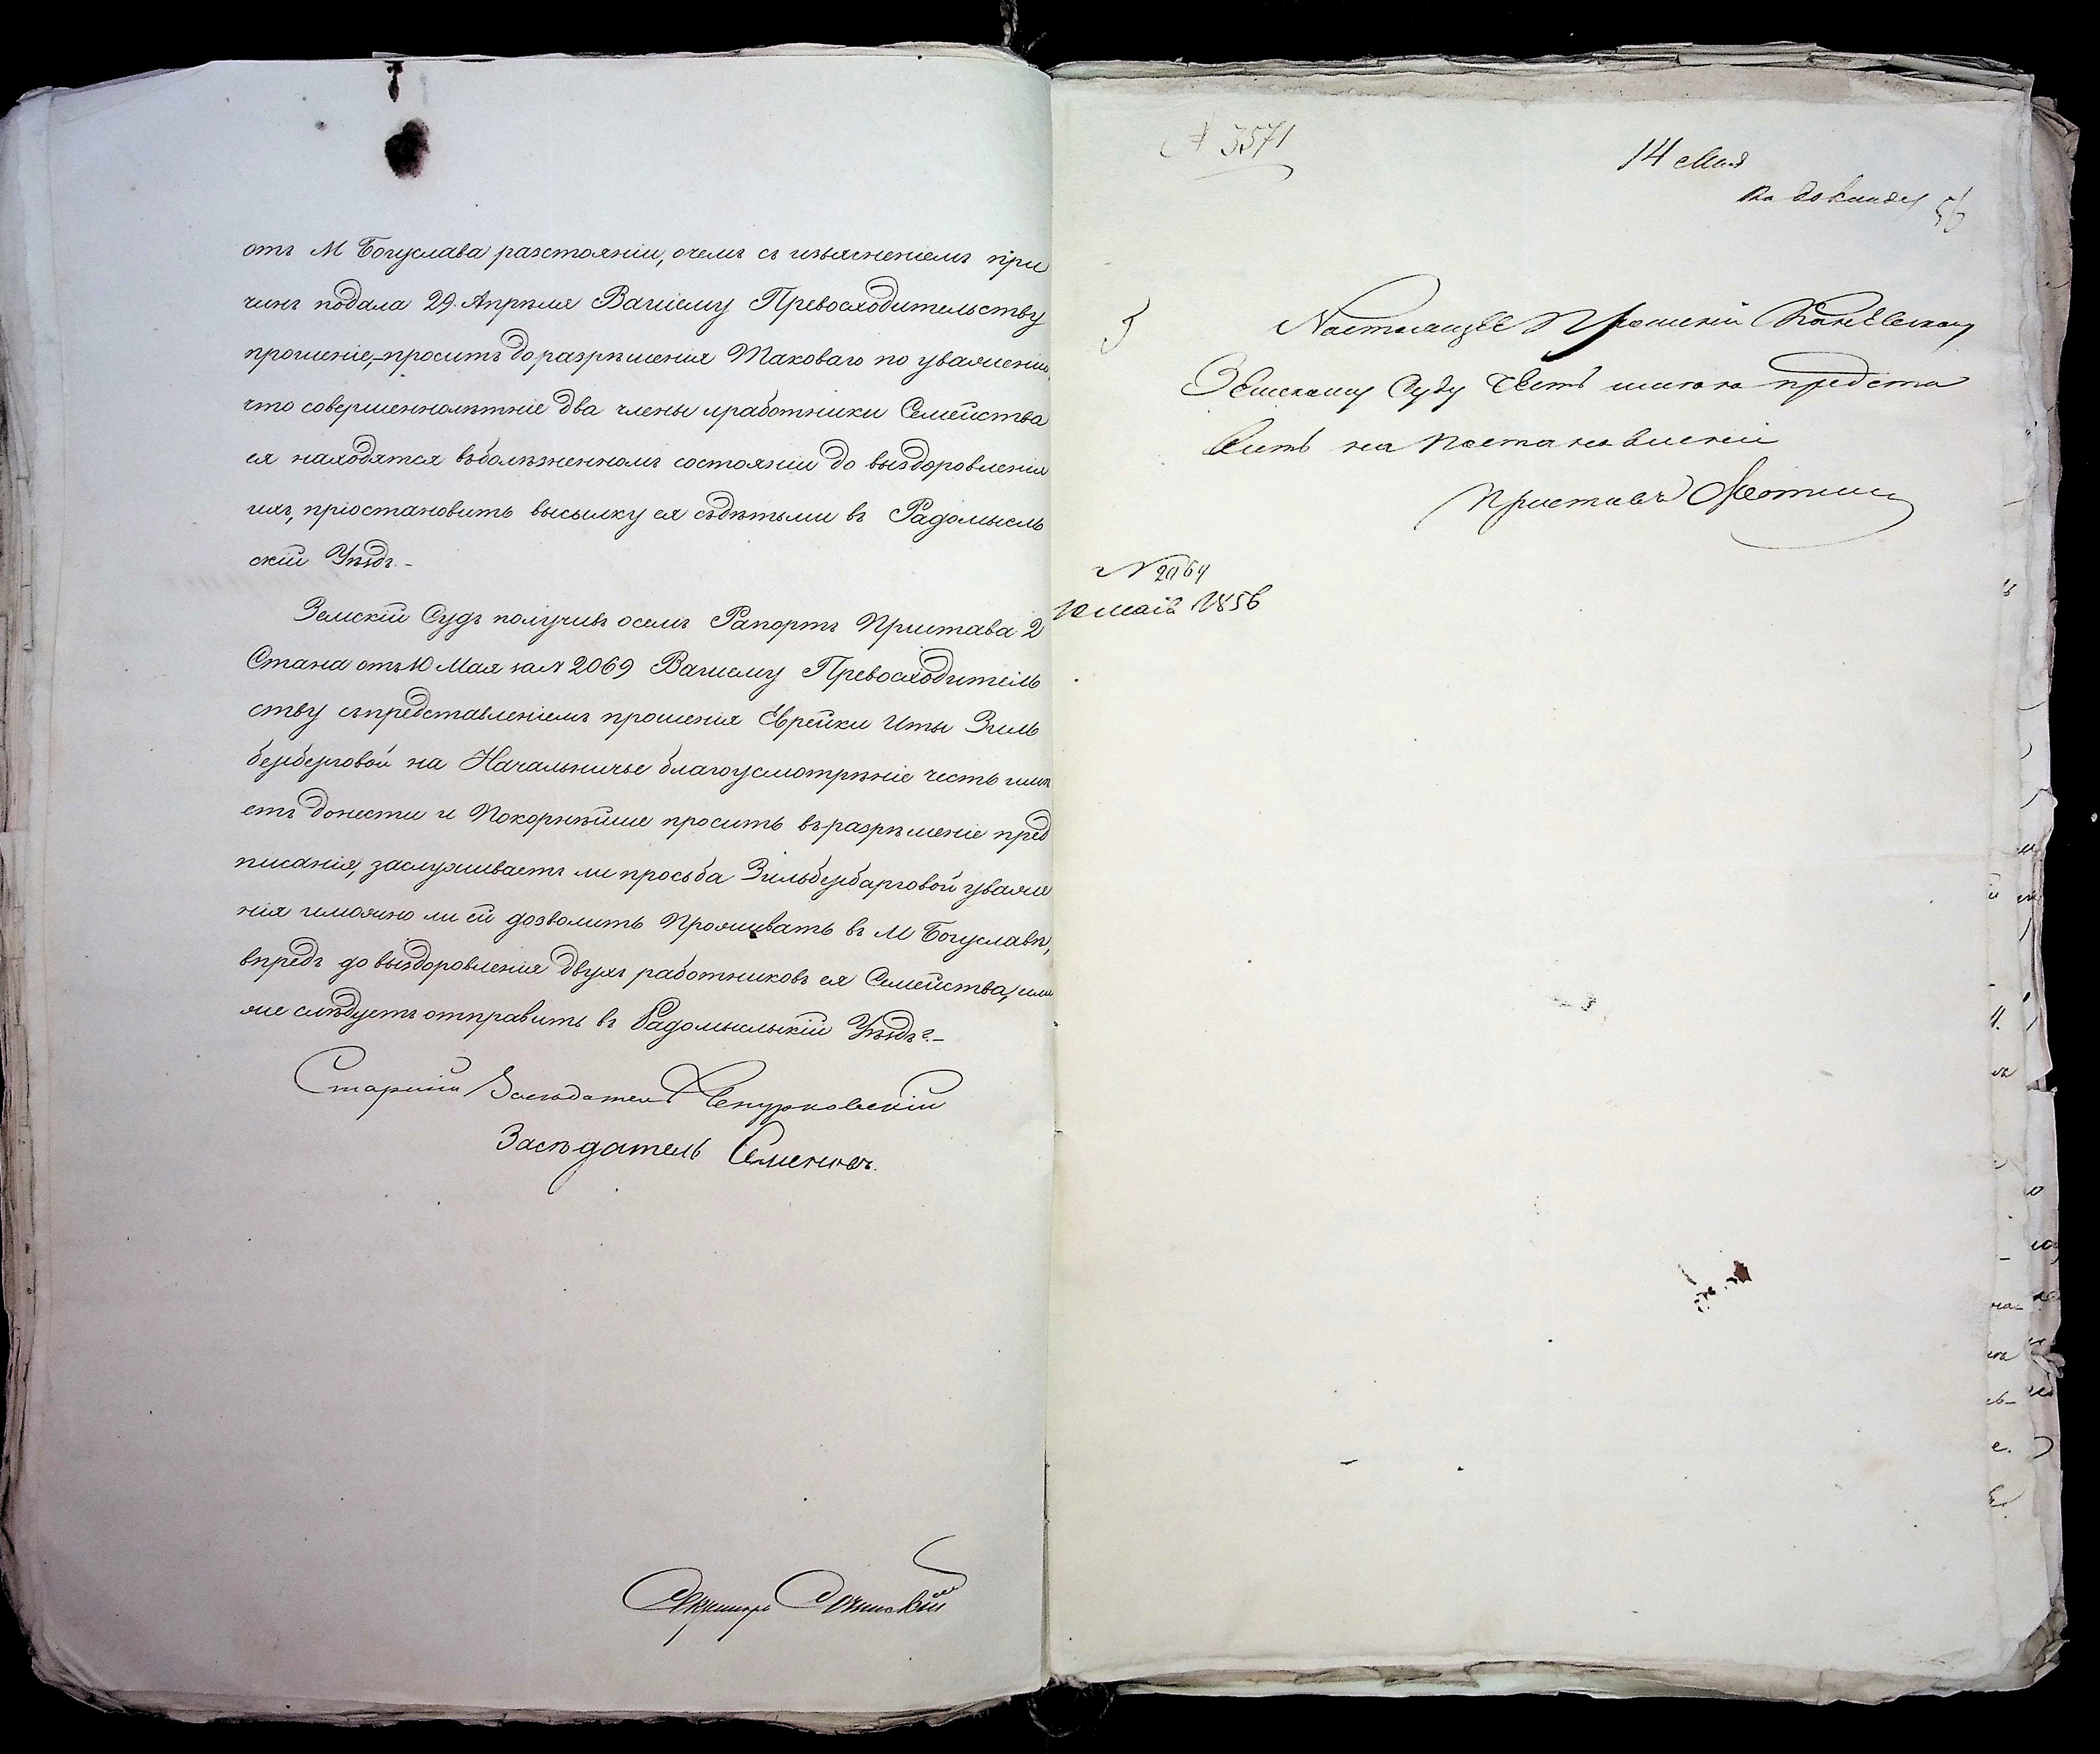 отъ М Богуслава разстояніи, очемъ съ изъясненіемъ при
чинъ подала 29. Апрѣля Вашему Превосходительству
прошеніе,-проситъ до разрѣшенія Таковаго по уваженію,
что совершеннолѣтніе два члены и работники Семейства
ея находятся въ болѣзненномъ состояніи до выздоровленія
ихъ, пріостановить высылку ея съ дѣтьми въ Радомысль
скій Уѣздъ.-
Земскій Судъ получивъ о семъ Рапортъ Пристава 2
Стана отъ 10 Мая за № 2069 Вашему Превосходитель
ству съ представленіемъ прошенія Еврейки Иты Зиль
бербергово́й на Начальничье благоусмотрѣніе честь имѣ
етъ донести и Покорнѣйше просить въ разрѣшеніе пред
писанія, заслуживаетъ ли просьба Зильбербарговой уваже
нія и можно ли ей дозволить Проживать въ М Богуславѣ,
впредь до выздоровленія двухъ работниковъ ея Семейства, или
же слѣдуетъ отправить въ Радомысльскій Уѣздъ?.-
Старшій Засѣдатель
Засѣдатель Семеновъ.
Секретарь
№ 3571
14 Мая
къ докладу 56
Настоящее Прошеніе Каневскому
Земскому Суду Честь имѣю предста
вить на Постановленіе
Приставъ
№ 2069
10 маія 1856